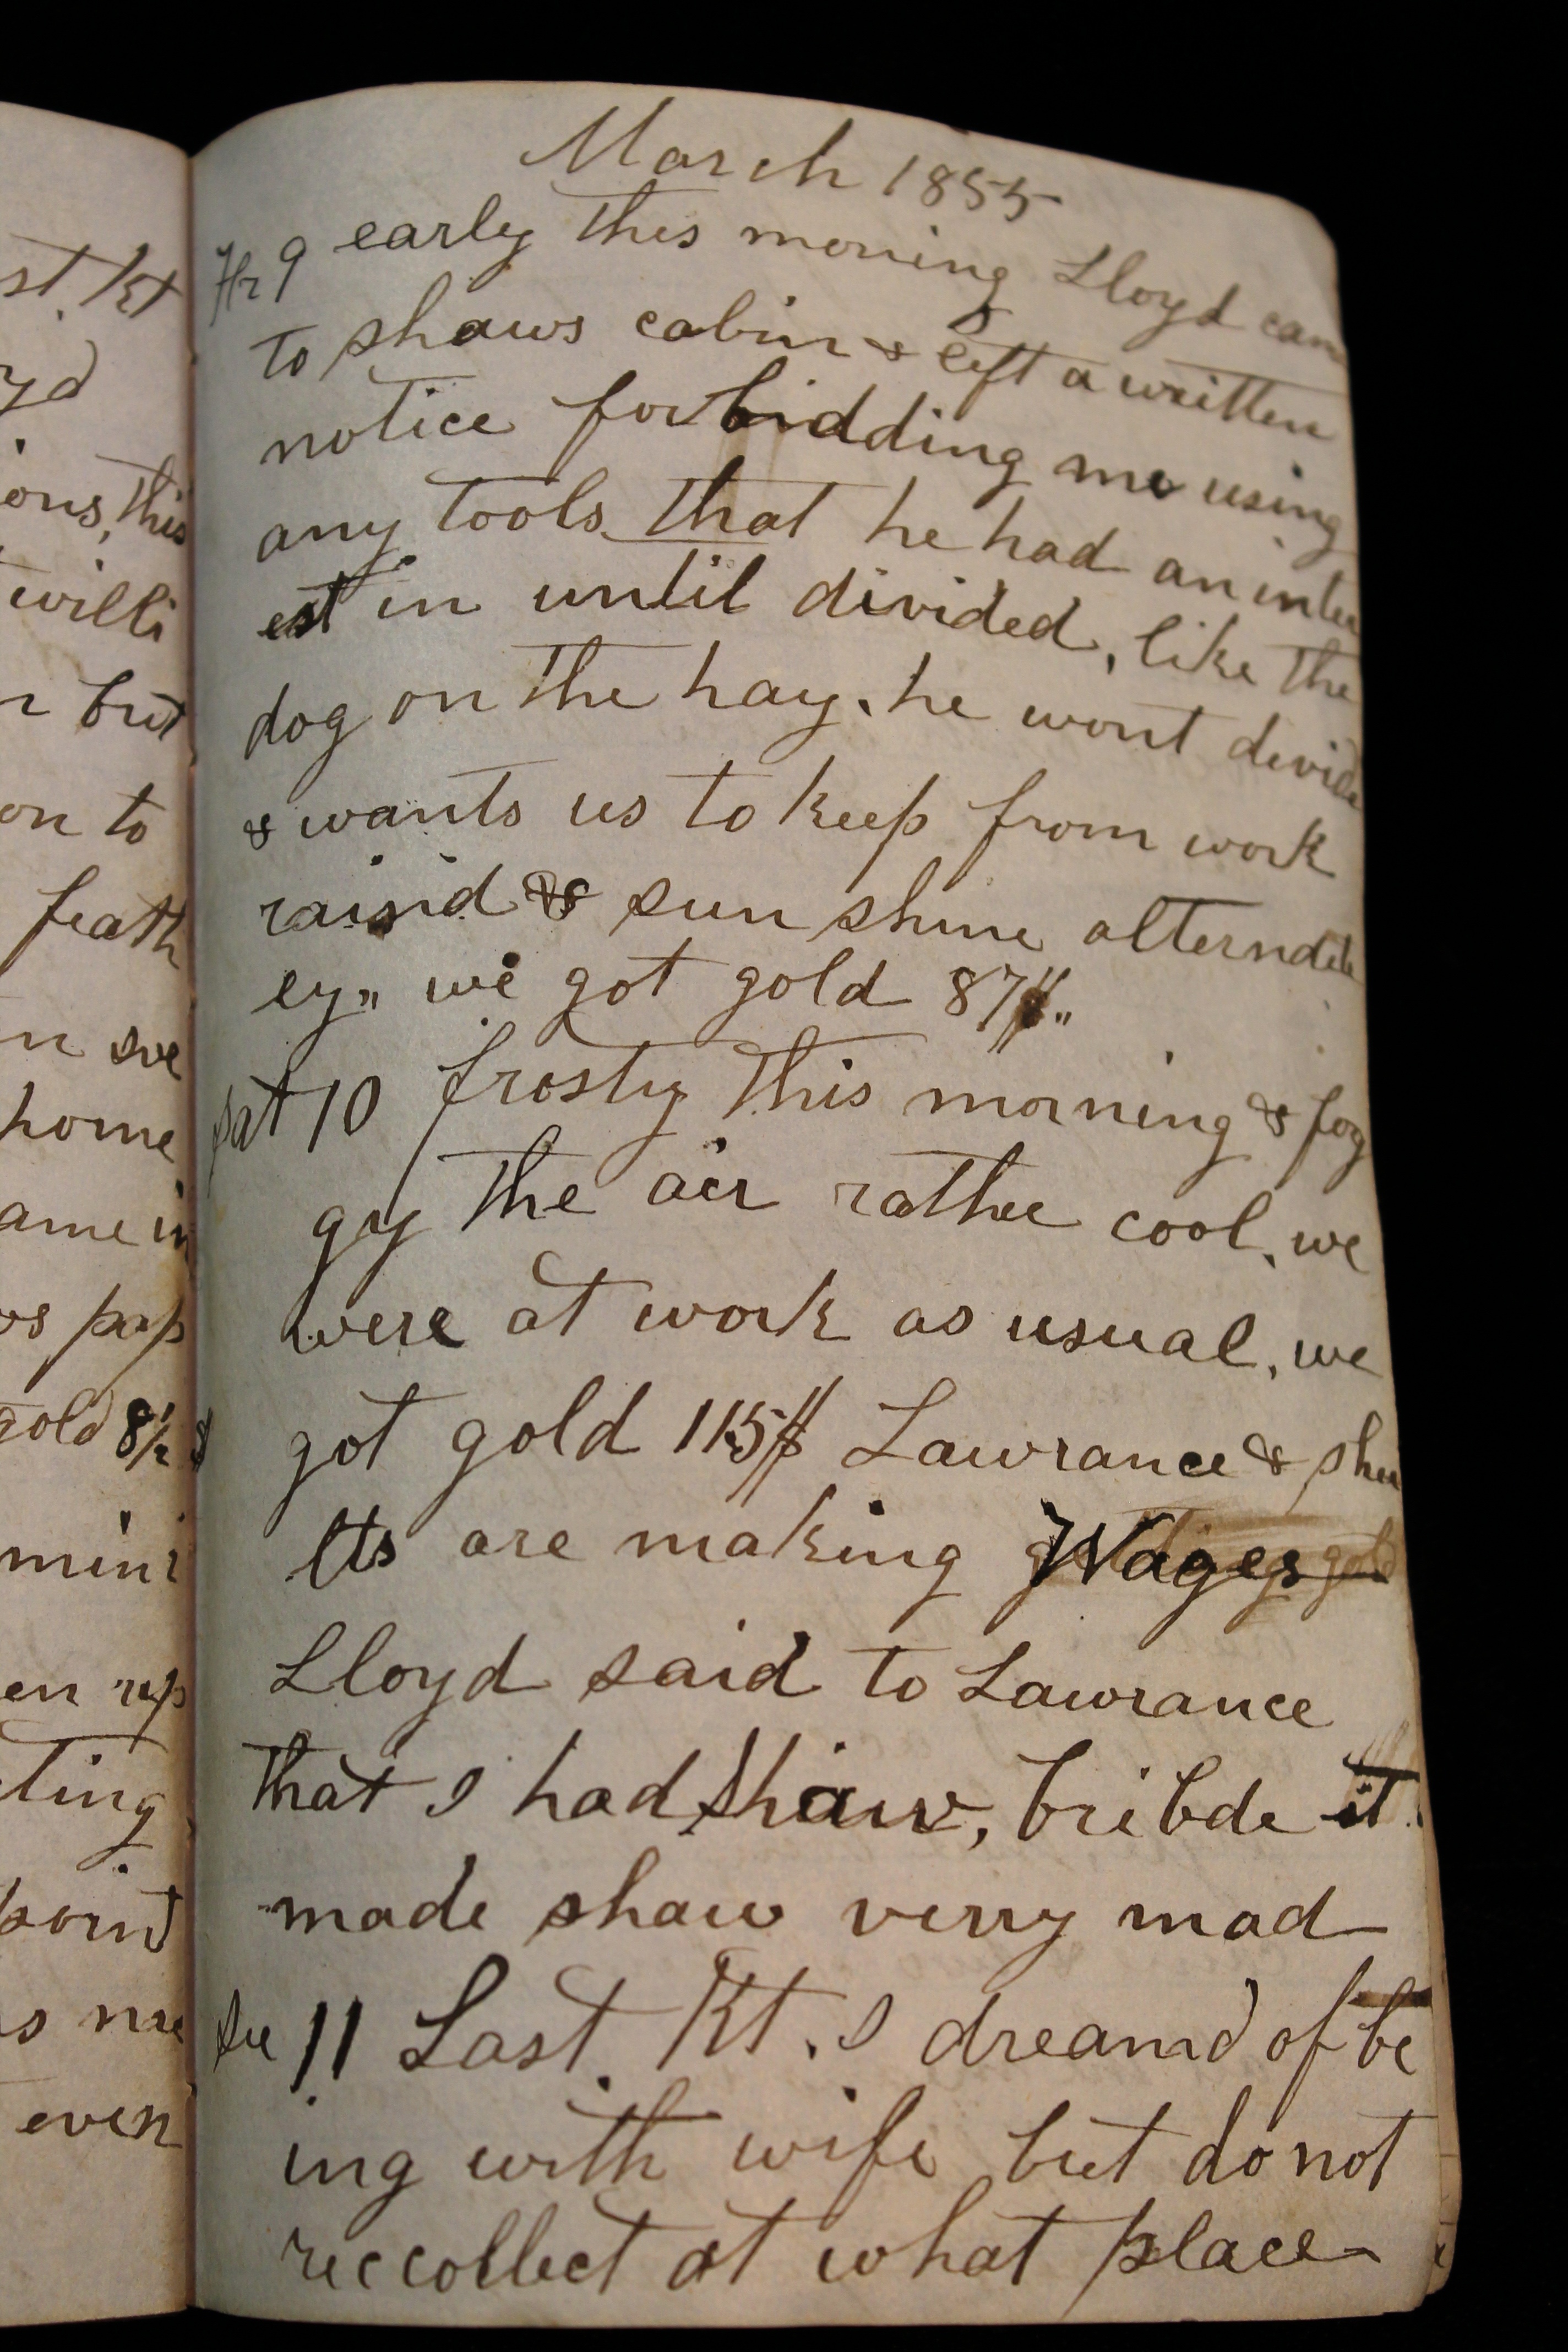 st. Kt
yd
ons, this
willi
n but
on to
feath
n we
home
ame in
ws pap
gold 8½ $
mini
en up
ting
point
s me
even
March 1855
Fr 9 early this morning Lloyd cam
to shaws cabin & left a written
notice forbidding me using
any tools that he had an inter
est in until divided, like the
dog on the hay. he wont devide
& wants us to keep from work
raind & sun shine alternate
ey,, we got gold 87$,,
Sat 10 frosty this morning & fog
gy the air rather cool, we
were at work as usual, we
got gold 115$ Lawrance & shu
lts are making Wages
Lloyd said to Lawrance
that I had shaw, bribde it
made shaw verry mad
Su 11 Last. Kt. I dreamd of be
ing with wife but do not
reccollect at what place